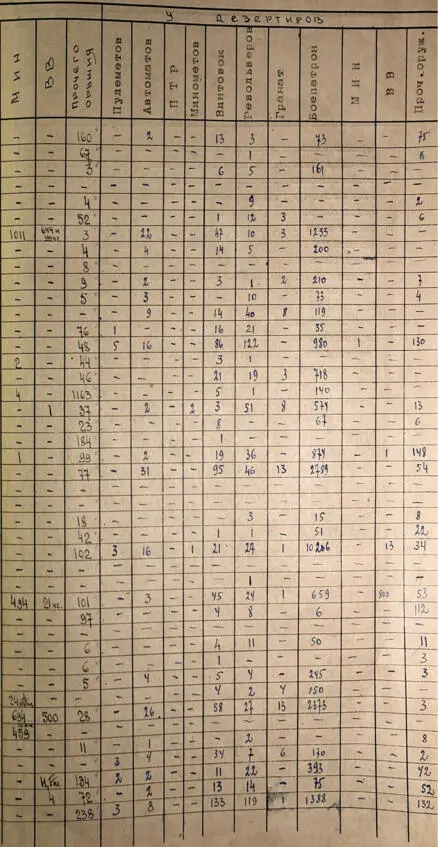 У ДЕЗЕРТИРОВ
МИН ВВ Прочего оружия Пулеметов Автоматов ПТР Минометов Винтовок Револьверов Гранат Боепатрон МИН ВВ Проч.оруж.
- - 160 - 2 - - 13 3 - 73 - - 75
- - 67 - - - - - 1 - - - - 8
- - 3 - - - - 6 5 - 161 - - -
- - - - - - - - - - - - - -
- - 4 - - - - - 9 - - - - 2
- - 52 - - - - 1 12 3 - - - 6
1011 3 - 22 - - 47 10 3 1235 - - -
- - 4 - 4 - - 14 5 - 200 - - -
- - 8 - - - - - - - - - - -
- - 9 - 2 - - 3 1 2 210 - - 7
- - 5 - 3 - - - 10 - 73 - - 4
- - - - 9 - - 14 40 8 119 - - -
- - 76 1 - - - 16 21 - 35 - - -
- - 48 5 16 - - 86 122 - 980 1 - 130
2 - 44 - - - - 3 1 - - - - -
- - 46 - - - - 21 19 3 718 - - -
4 - 1163 - - - - 5 1 - 140 - - -
- 1 37 - 2 - 2 3 51 8 574 - - 13
- - 23 - - - - 8 - - 67 - - 6
- - 184 - - - - 1 - - - - - -
1 - 99 - 2 - - 19 36 - 874 - 1 148
- - 77 - 31 - - 95 46 13 2789 - - 54
- - - - - - - - - - - - - -
- - 18 - - - - - 3 - 15 - - 8
- - 42 - - - - 1 1 - 51 - - 22
- - 102 3 16 - 1 21 27 1 10206 - 13 34
- - - - - - - - - - - - - -
- - - - - - - - 1 - - - - -
494 21кг. 101 - 3 - - 45 24 1 659 - 800 53
- - 97 - - - - 4 8 - 6 - - 112
- - - - - - - - - - - - - -
- - 6 - - - - 4 11 - 50 - - 11
- - 6 - - - - 1 - - - - - 3
- - 5 - 4 - - 5 4 - 245 - - 3
- - - - - - 4 2 4 150 - - -
694 500 28 - 26 - - 58 27 13 2373 - - 3
459 - - - - - - - - - - - -
- - 11 - 1 - - - 2 - - - - 8
- - - 3 4 - - 34 7 6 170 - - 2
- 134 2 2 - - 11 22 - 393 - - 42
- 4 72 - 2 - - 13 14 - 75 - - 52
- - 238 3 8 - - 133 119 1 1388 - - 132